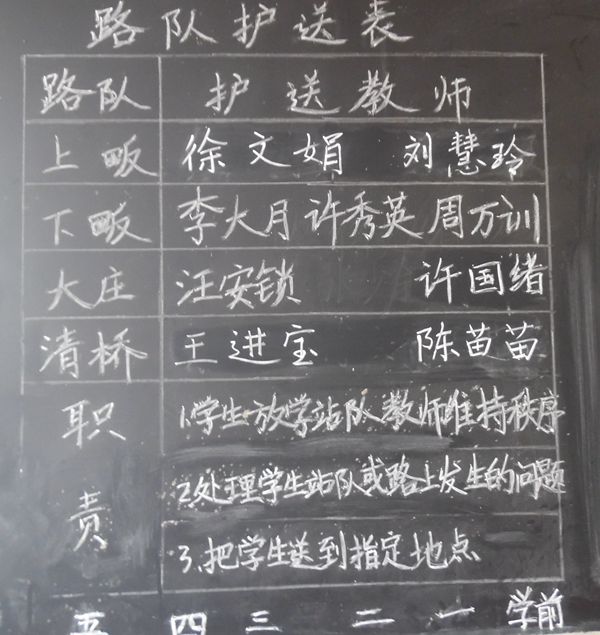 路队护送表
路队 护送教师
上畈 徐文娟 刘慧玲
下畈 李火月 许秀英 周万训
大庄 汪安锁 许国绪
清桥 王进宝 陈苗苗
职责
1.学生放学站队教师维持秩序
2.处理学生站队或路上发生的问题
3.把学生送到指定地点
五 四 三 二 一 学前